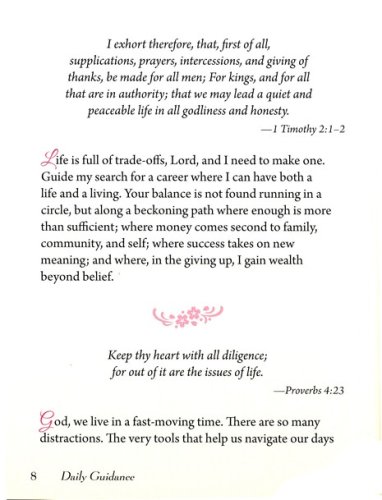 I exhort therefore, that, first of all,
supplications, prayers, intercessions, and giving of
thanks, be made for all men; For kings, and for all
that are in authority; that we may lead a quiet and
peaceable life in all godliness and honesty.
—1 Timothy 2:1–2
Life is full of trade-offs, Lord, and I need to make one.
Guide my search for a career where I can have both a
life and a living. Your balance is not found running in a
circle, but along a beckoning path where enough is more
than sufficient; where money comes second to family,
community, and self; where success takes on new
meaning; and where, in the giving up, I gain wealth
beyond belief.
Keep thy heart with all diligence;
for out of it are the issues of life.
—Proverbs 4:23
God, we live in a fast-moving time. There are so many
distractions. The very tools that help us navigate our days
8 Daily Guidance